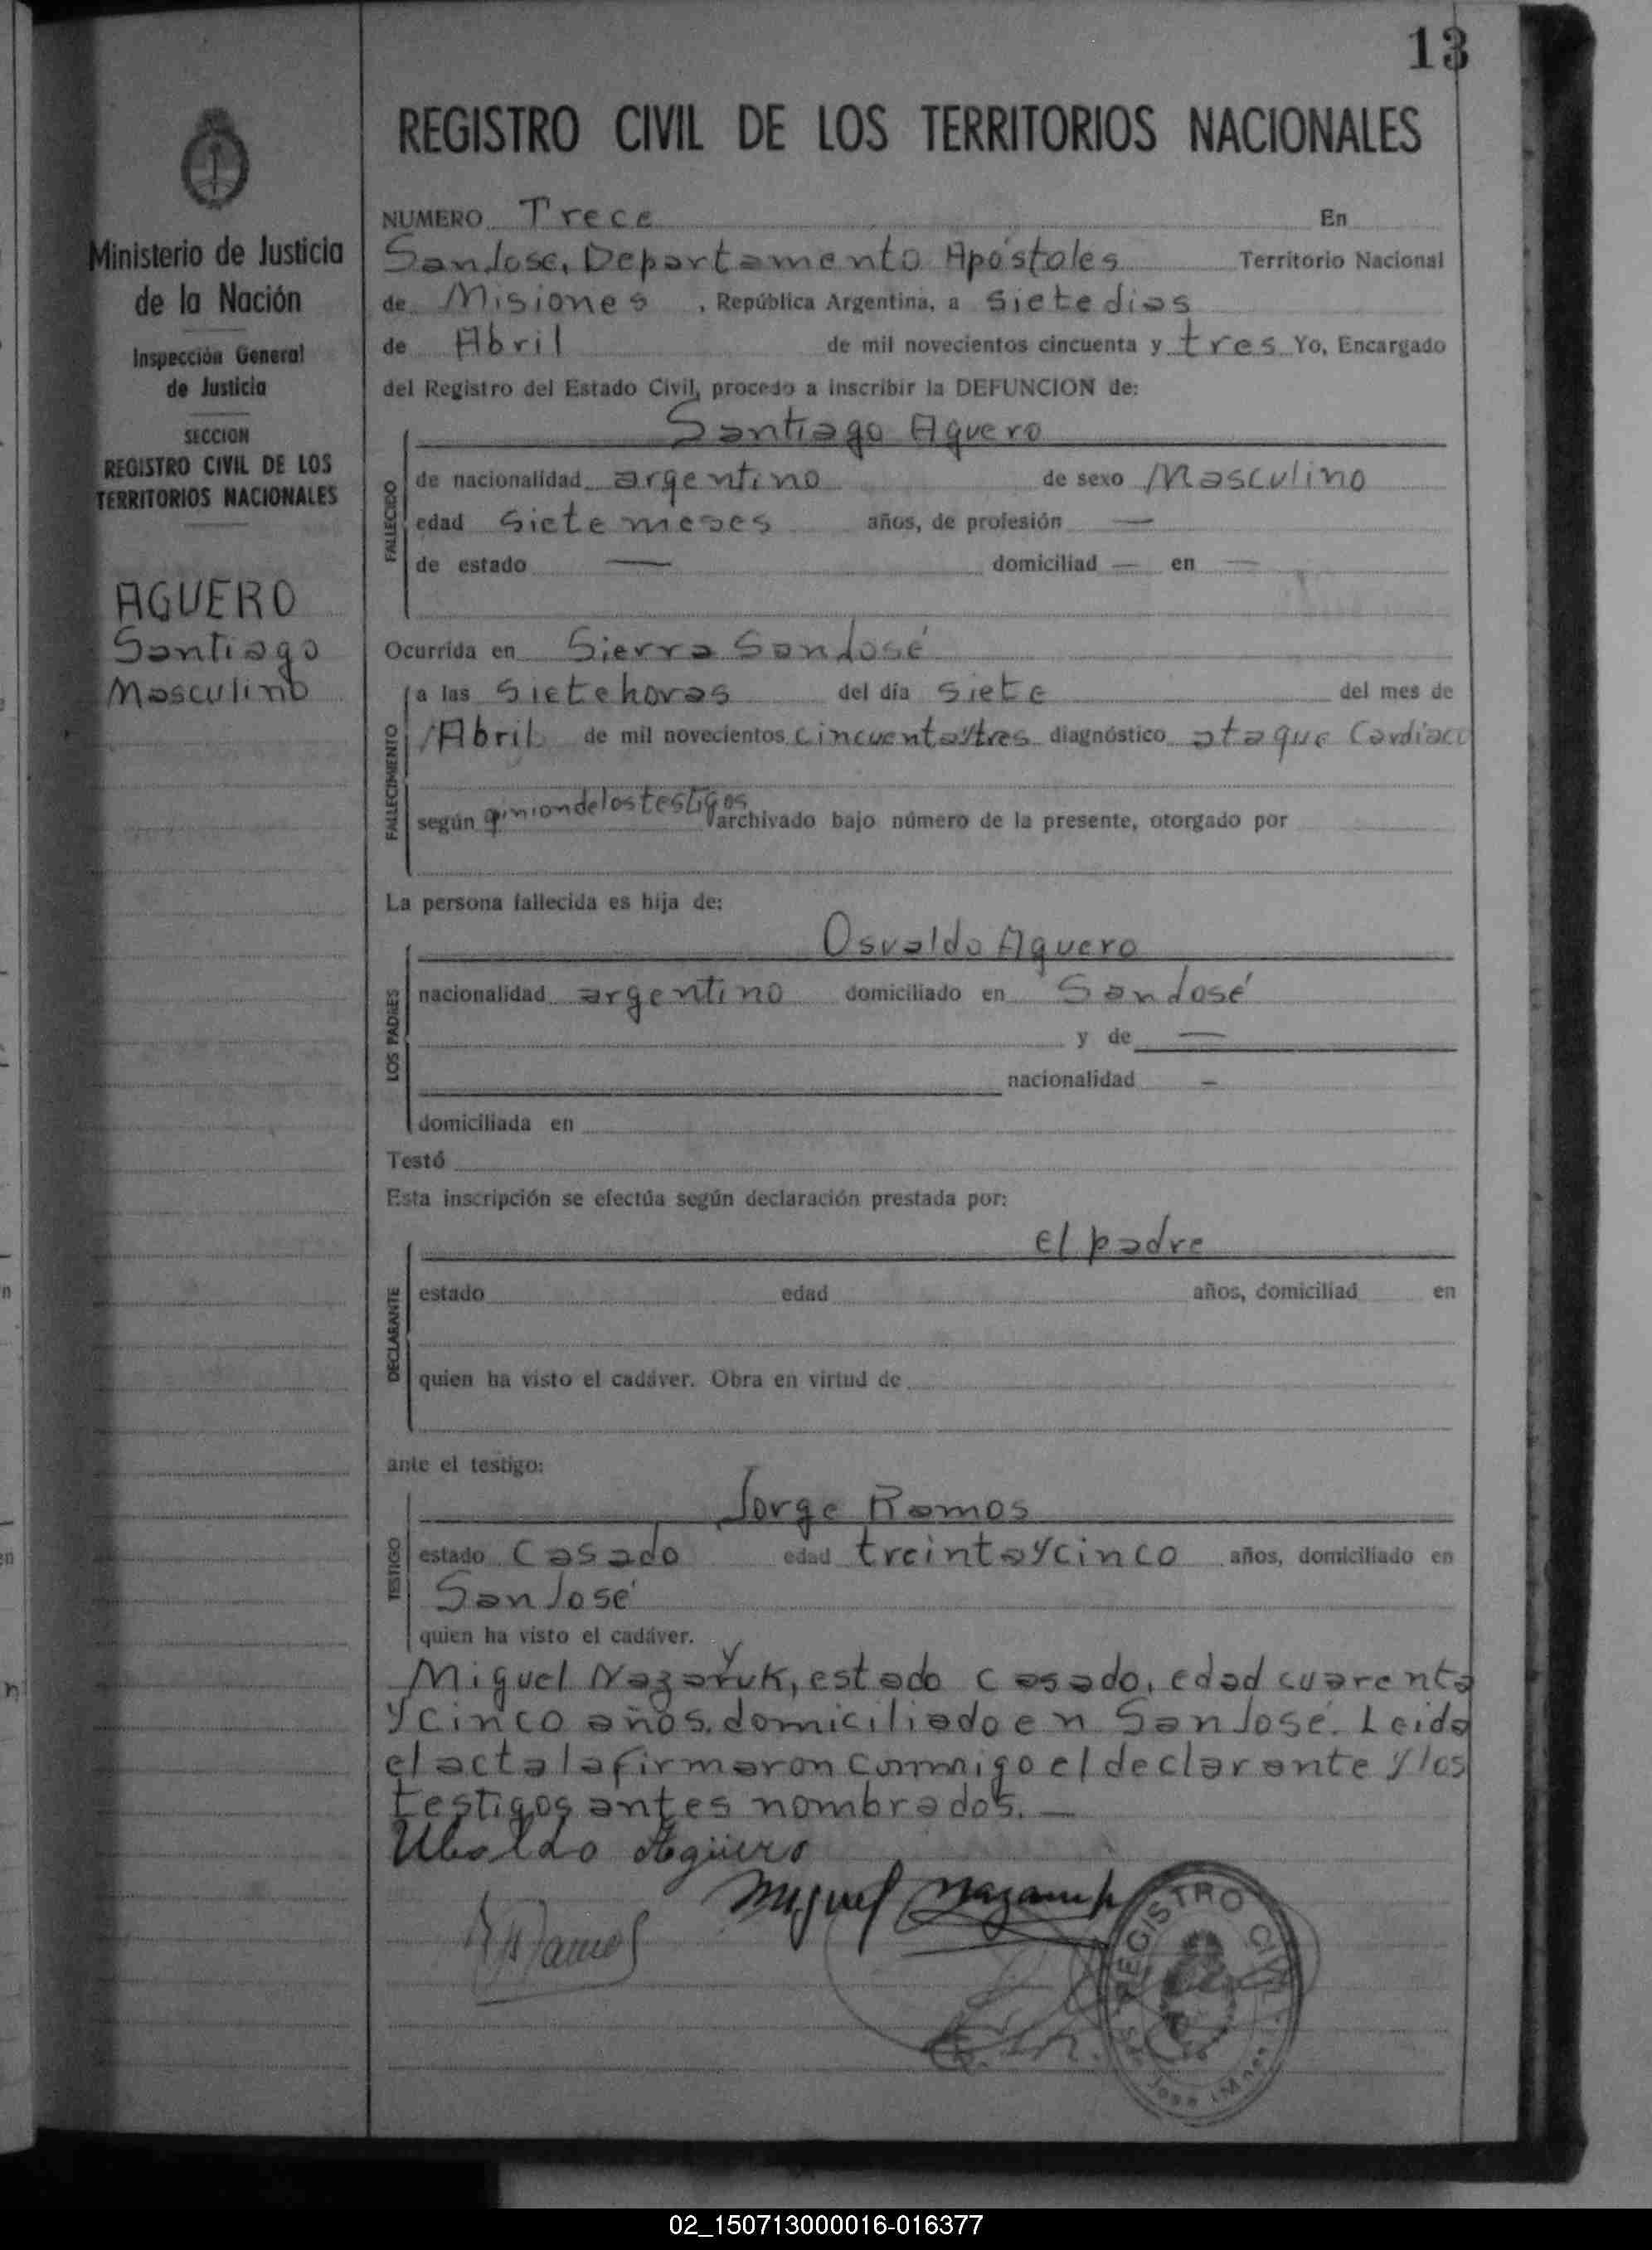 13
REGISTRO CIVIL DE LOS TERRITORIOS NACIONALES
Ministerio de Justicia
de la Nación
Inspección General
de Justicia
SECCION
REGISTRO CIVIL DE LOS
TERRITORIOS NACIONALES
AGUERO
Santiago
Masculino
NUMERO Trece En
San Jose, Departamento Apóstoles Territorio Nacional
de Misiones , República Argentina, a siete dias
de Abril de mil novecientos cincuenta y tres Yo, Encargado
del Registro del Estado Civil, procedo a inscribir la DEFUNCION de:
Santiago Aguero
FALLECIDO
de nacionalidad argentino de sexo Masculino
edad siete meses años, de profesión —
de estado — domiciliad — en —
Ocurrida en Sierra San José
FALLECIMIENTO
a las siete horas del día siete del mes de
Abril de mil novecientos cincuenta y tres diagnóstico ataque Cardiaco
según opinion de los testigos archivado bajo número de la presente, otorgado por
La persona fallecida es hija de:
Osvaldo Aguero
LOS PADRES
nacionalidad argentino domiciliado en San José
y de —
nacionalidad —
domiciliada en
Testó
Esta inscripción se efectúa según declaración prestada por:
el padre
DECLARANTE
estado edad años, domiciliad en
quien ha visto el cadáver. Obra en virtud de
ante el testigo:
Jorge Ramos
TESTIGO
estado Casado edad treinta y cinco años, domiciliado en
San José
quien ha visto el cadáver.
Miguel Nazaruk, estado casado, edad cuarenta
y cinco años, domiciliado en San José. Leida
el acta la firmaron conmigo el declarante y los
testigos antes nombrados. —
Ubaldo Agüero
Miguel Nazaruk
Ramos
REGISTRO CIVIL
San Jose (Mnes.)
02_150713000016-016377